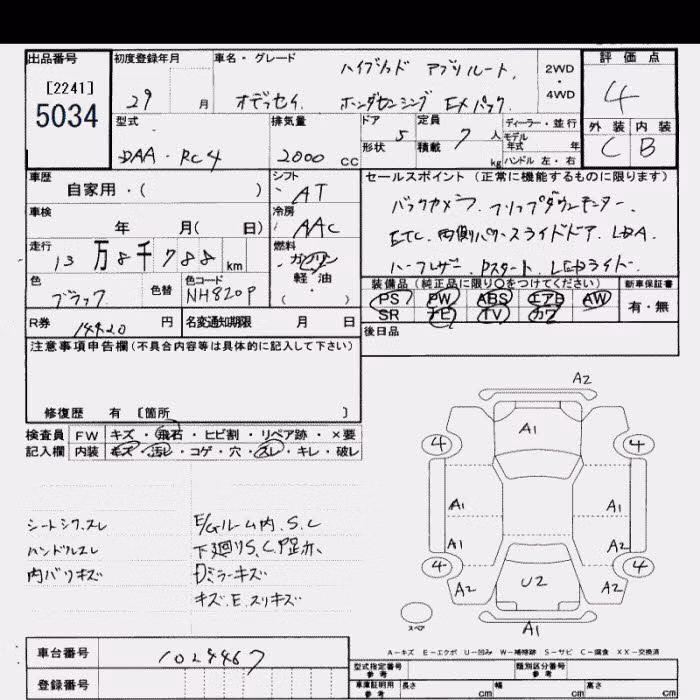 出品番号 初度登録年月 車名・グレード ハイブリッド アブソルート. 2WD・4WD 評価点
[2241] 5034 29 月 オデッセイ. ホンダセンシング EXパック 4
型式 排気量 ドア 5 定員 7 人 ディーラー・並行 外装 内装
DAA・RC4 2000 CC 形状 積載 kg モデル年式 年 ハンドル 左・右 C B
車歴 自家用・( ) シフト AT セールスポイント (正常に機能するものに限ります)
車検 年 月( 日) 冷房 AAC バックカメラ. フリップダウンモニター.
走行 13 万 8 千 788 km 燃料 ガソリン 軽油 ・( ) ETC. 両側パワースライドドア. LDA.
ハーフレザー. Pスタート. LEDライト.
色 ブラック 色替 色コード NH820P 装備品 (純正品に限り○をつけてください) 新車保証書
PS PW ABS エアB AW 有・無
SR ナビ TV カワ
R券 14420 円 名変通知期限 月 日 後日品
注意事項申告欄 (不具合内容等は具体的に記入して下さい)
修復歴 有 [箇所 ]
検査員 FW キズ・飛石・ヒビ割・リペア跡・×要
記入欄 内装 キズ・汚レ・コゲ・穴・スレ・キレ・破レ
A2
A1
4 4
A1 A1
A1 A2
4 4
A2 U2 A2
スペア A1
シートシワ.スレ E/Gルーム内.S.C
ハンドルスレ 下廻りS.C.
内バリキズ Dミラーキズ
キズ.E.スリキズ
A-キズ E-エクボ U-凹み W-補修跡 S-サビ C-腐食 XX-交換済
車台番号 1024467 型式指定番号 参考 類別区分番号 参考
登録番号 車庫証明用 参考 長さ cm 幅 cm 高さ cm